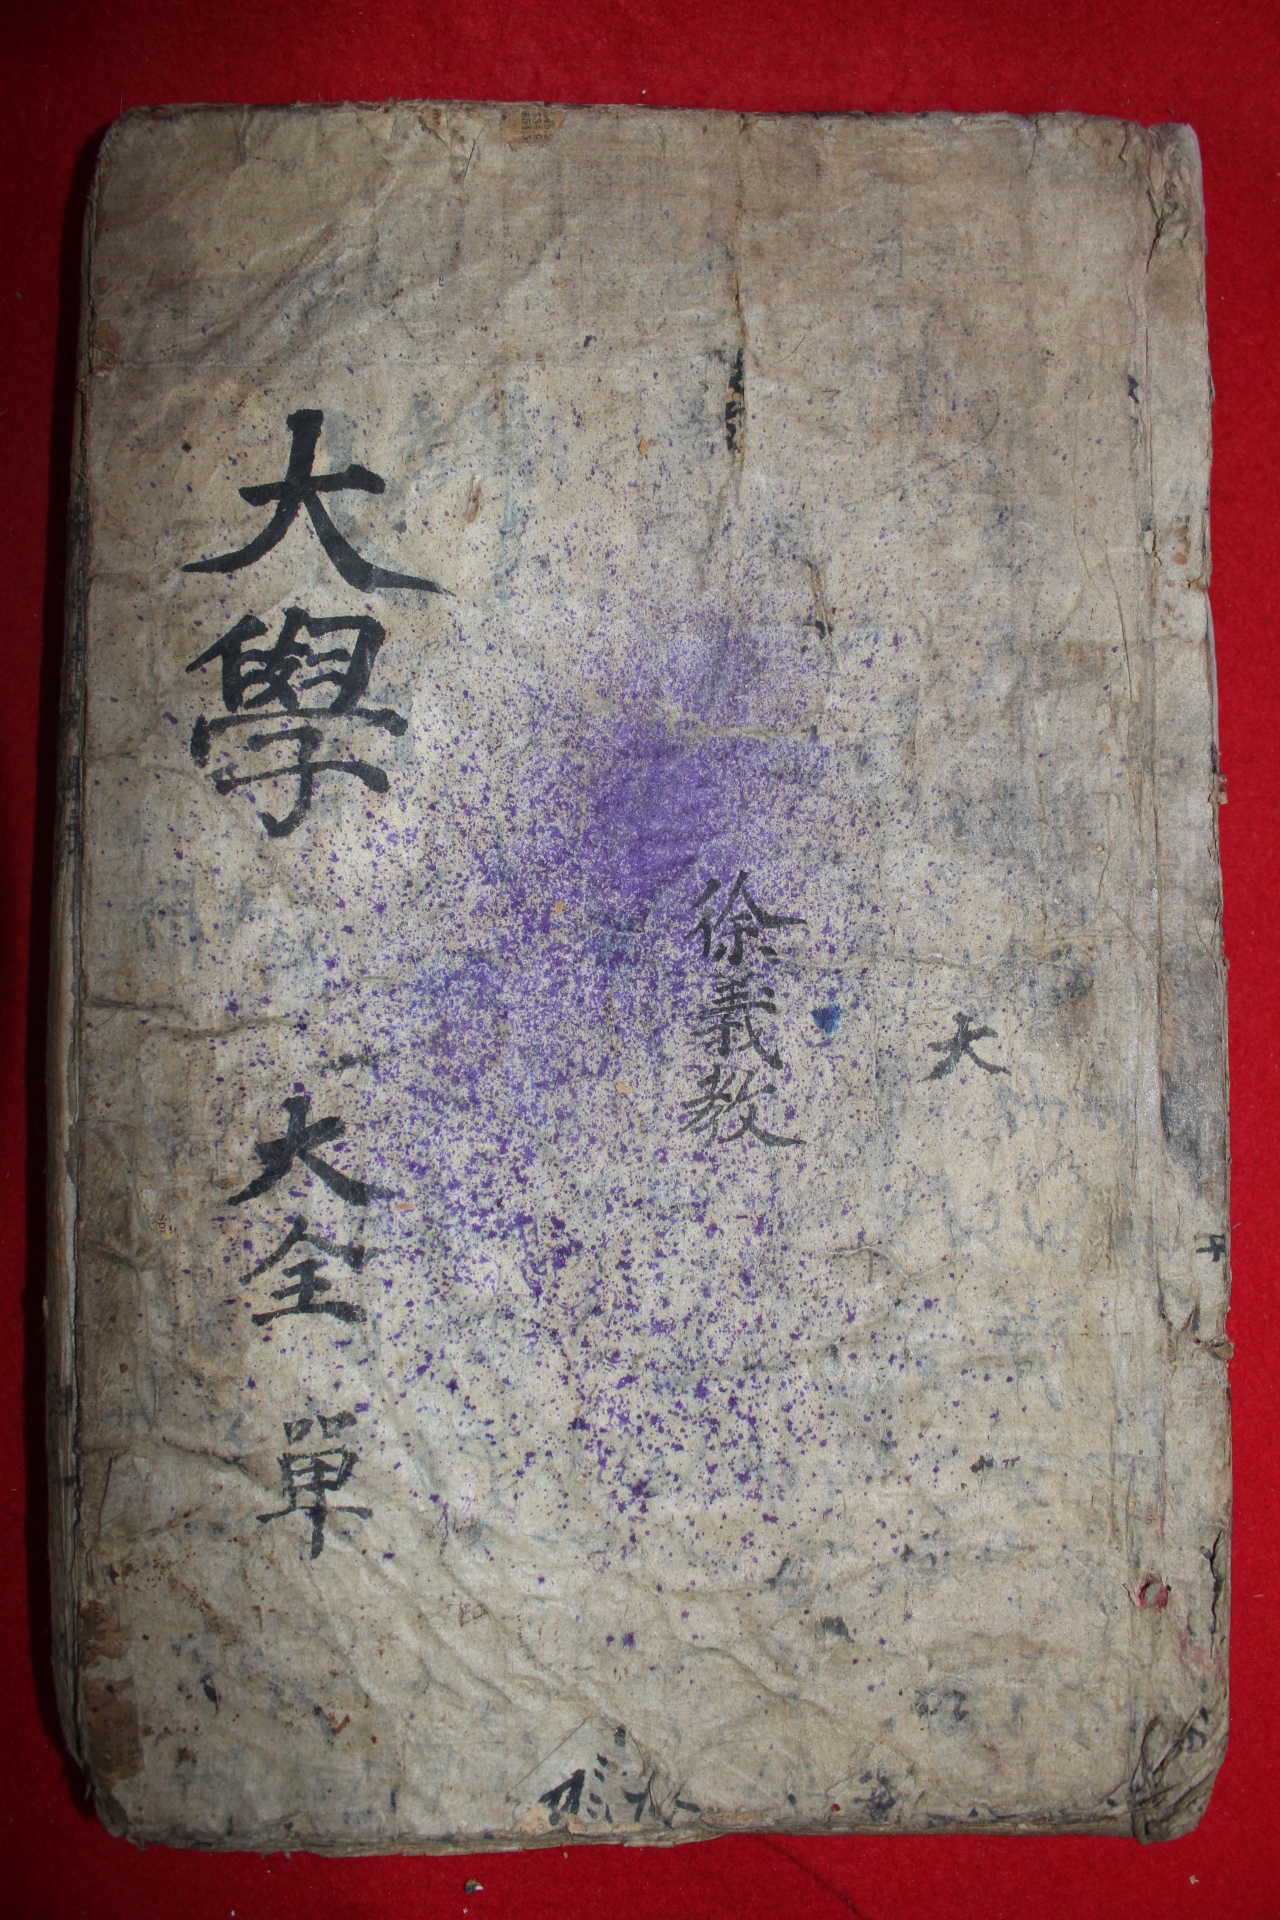 大
徐義教
大學
大全
單